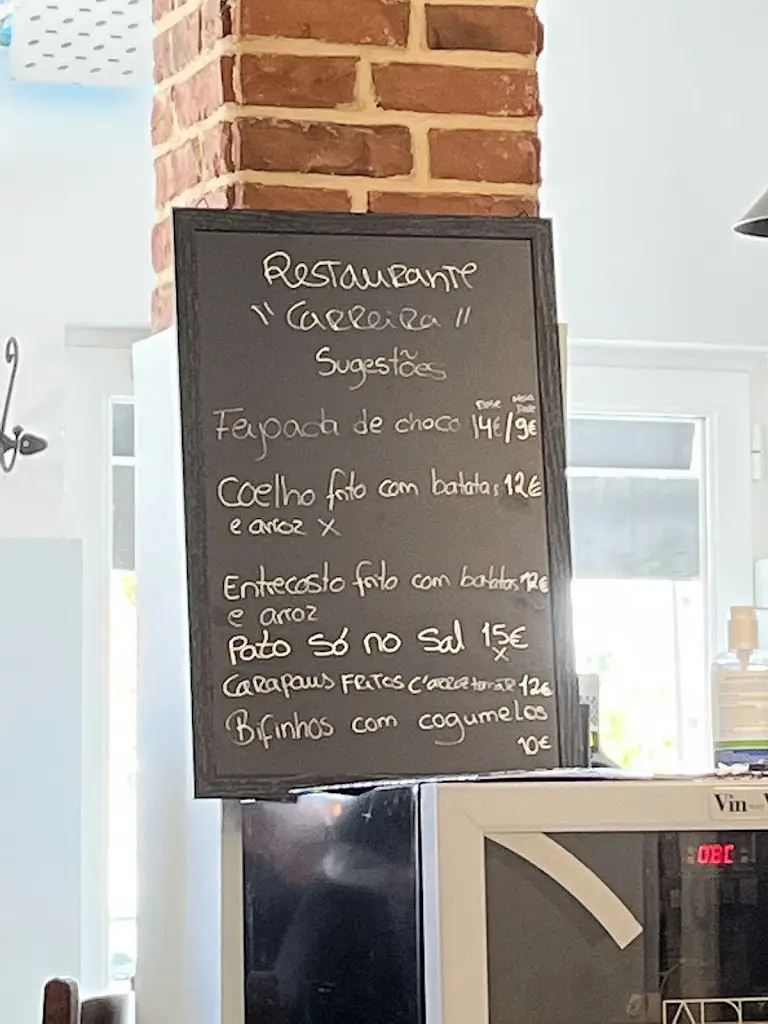 Restaurante
"Carreira"
Sugestões
Dose Meia Dose
Feijoada de choco 14€/9€
Coelho frito com batatas 12€
e arroz X
Entrecosto frito com batatas 12€
e arroz
Pato Só no Sal 15€
X
CARAPAUS FRITOS C/arroz tomate 12€
Bifinhos com cogumelos
10€
Vin